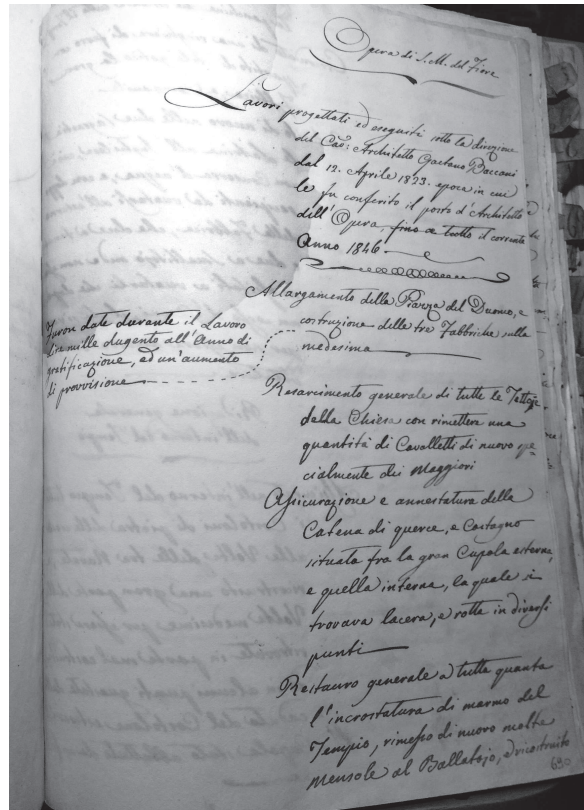 Opera di S. M. del Fiore
Lavori progettati ed eseguiti sotto la direzione
del Cav: Architetto Gaetano Baccani
dal 12. Aprile 1823. epoca in cui
le fu conferito il posto d'Architetto
dell'Opera, fino a tutto il corrente
Anno 1846
Allargamento della Piazza del Duomo, e
costruzione delle tre Fabbriche sulla
medesima
Furon date durante il Lavoro
Lire mille dugento all'Anno di
gratificazione, ed un'aumento
di provvisione
Resarcimento generale di tutte le Tettoje
della Chiesa con rimettere una
quantità di Cavalletti di nuovo spe-
cialmente dei Maggiori
Assicurazione e annestatura della
Catena di querce, e Castagno
situata fra la gran Cupola esterna,
e quella interna, la quale si
trovava lacera, e rotta in diversi
punti
Restauro generale a tutta quanta
l'incrostatura di marmo del
Tempio, rimesso di nuovo molte
Mensole al Ballatojo, e ricostruito
690